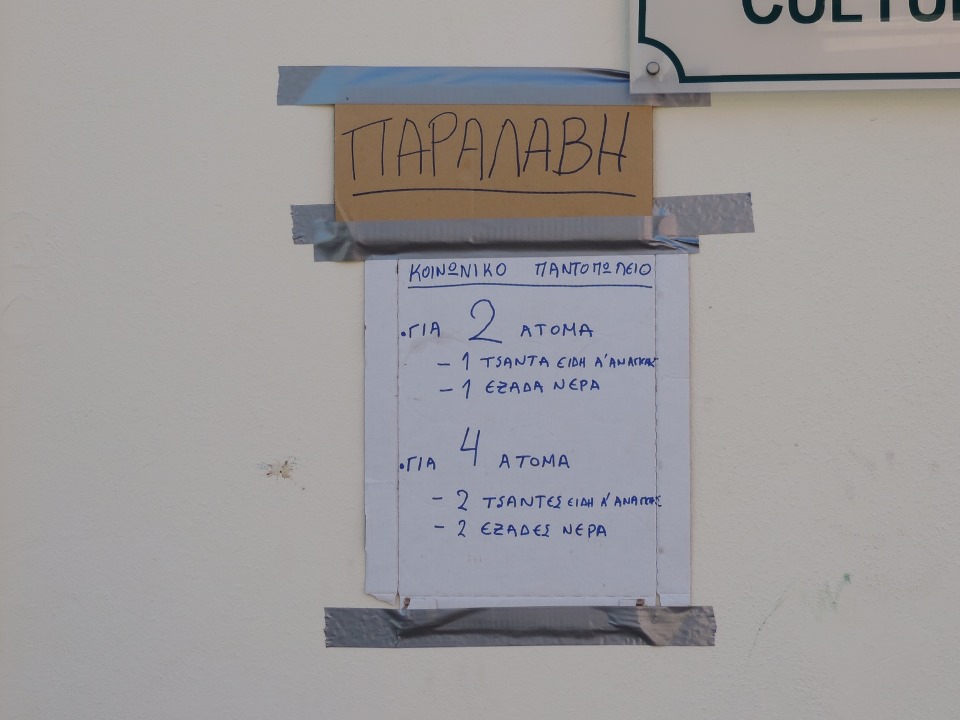 ΠΑΡΑΛΑΒΗ
ΚΟΙΝΩΝΙΚΟ ΠΑΝΤΟΠΩΛΕΙΟ
•ΓΙΑ 2 ΑΤΟΜΑ
- 1 ΤΣΑΝΤΑ ΕΙΔΗ Α' ΑΝΑΓΚΗΣ
- 1 ΕΞΑΔΑ ΝΕΡΑ
•ΓΙΑ 4 ΑΤΟΜΑ
- 2 ΤΣΑΝΤΕΣ ΕΙΔΗ Α' ΑΝΑΓΚΗΣ
- 2 ΕΞΑΔΕΣ ΝΕΡΑ